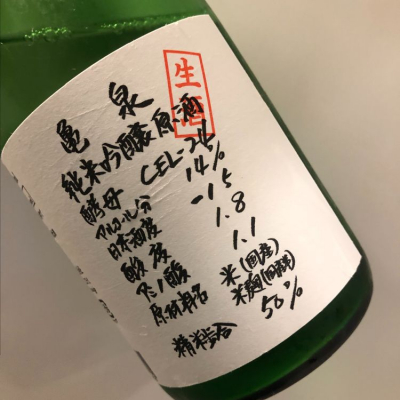 生酒
亀泉
純米吟醸原酒
酵母 CEL-24
アルコール分 14%
日本酒度 -15
酸度 1.8
アミノ酸 1.1
原材料名 米(国産)
米麹(国産米)
精米歩合 50%